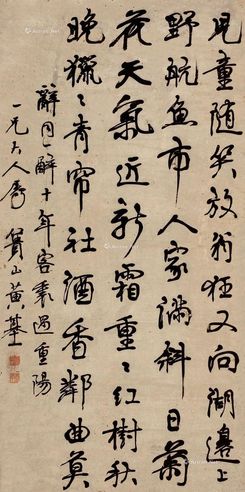 兒童隨笑放翁狂又向湖邊上
野航魚市人家滿斜日菊
花天氣近新霜重〻紅樹秋
晚獵〻青帘社酒香鄰曲莫
辭同一醉十年客裏過重陽
一兄大人屬 山黃基